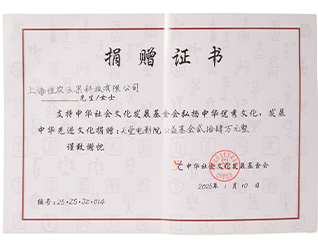 捐赠证书
上海佳农云果科技有限公司
先生/女士
支持中华社会文化发展基金会弘扬中华优秀文化,发展
中华先进文化捐赠:大爱电影院公益基金贰拾肆万元整
谨致谢忱
中华社会文化发展基金会
2025年1月10日
编号:25-ZS-JZ-014